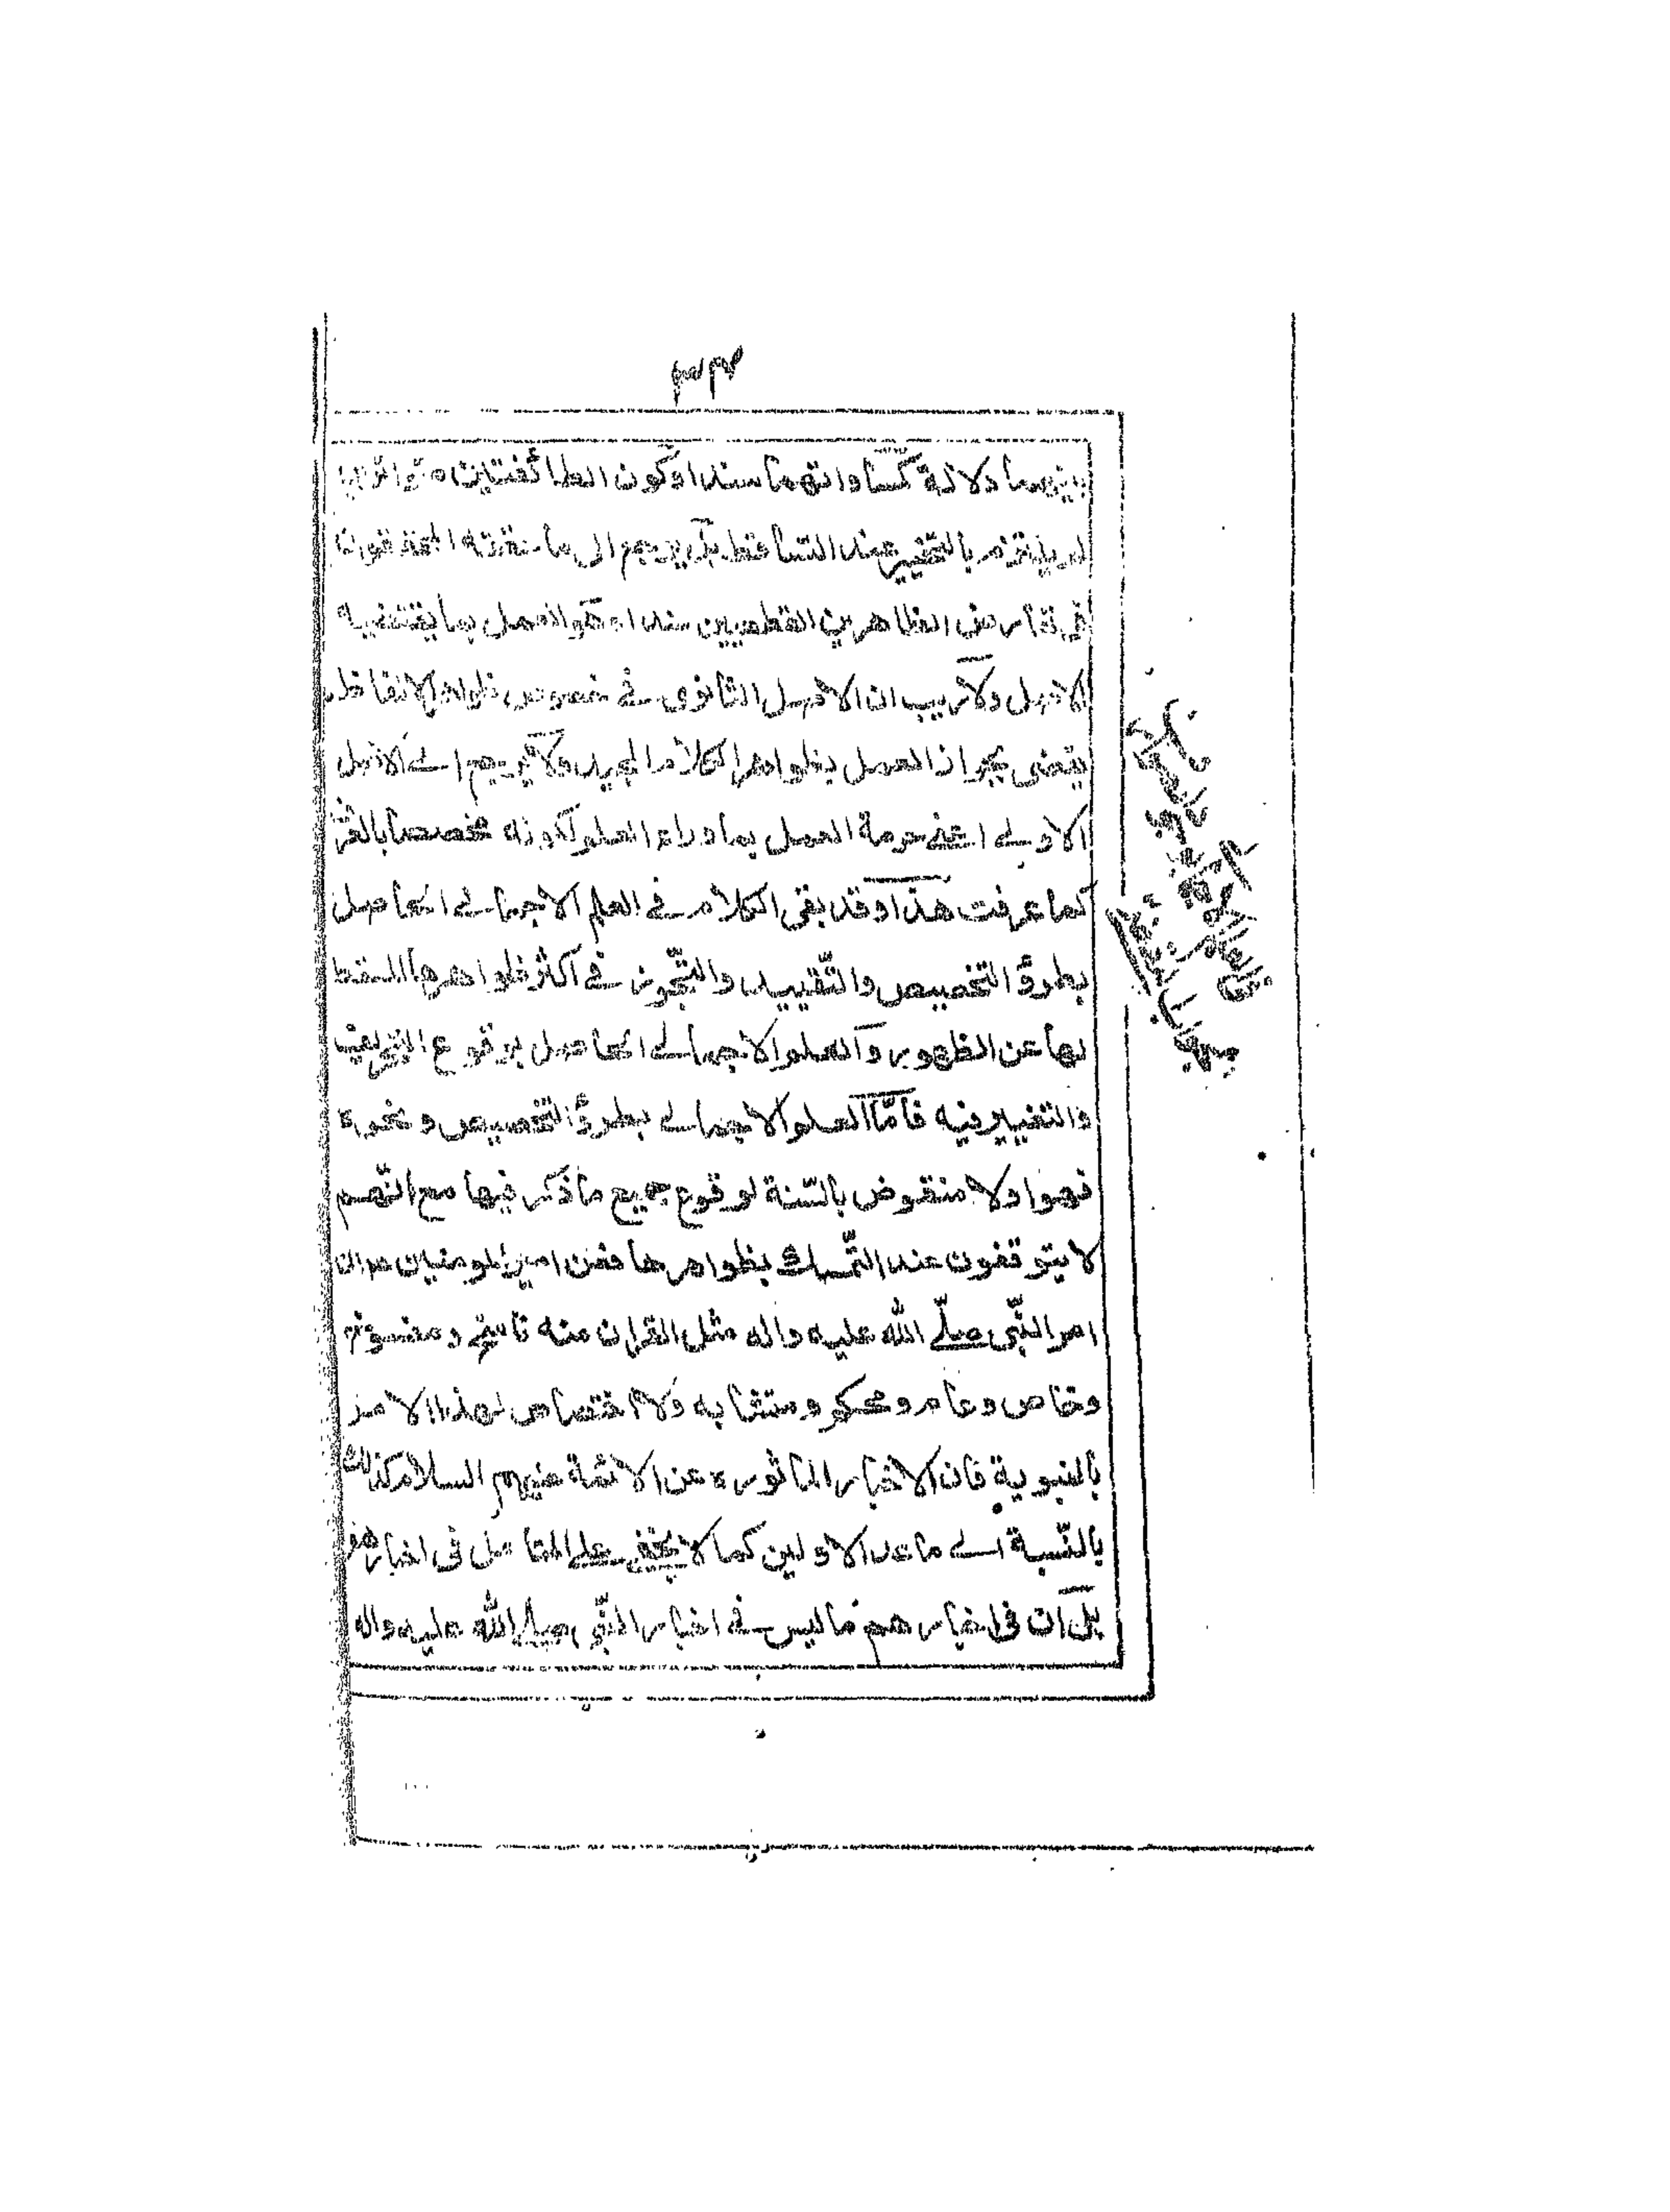 بينهما دلالة كتساويهما سندا وكون الطائفتين متواترين
لم يلتزم بالتخيير عند التساقط بل يرجع الى ما نقحه المحققون
فى تعارض الظاهرين القطعيين سندا وهو العمل بما يقتضيه
الاصل ولا ريب ان الاصل الثانوى فى خصوص ظواهر الالفاظ
يقضى بجواز العمل بظواهر الكلام المجيد ولا يرجع الى الاصل
الاولى اعنى حرمة العمل بما وراء العلم لكونه مخصصا
كما عرفت هذا وقد بقى الكلام فى العلم الاجمالى الحاصل
بطروّ التخصيص والتّقييد والتّجوز فى اكثر ظواهرها المسقط
لها عن الظهور والعلم الاجمالى الحاصل بوقوع التحريف
والتغيير فيه فامّا العلم الاجمالى بطروّ التخصيص ونحوه
فهو اولا منقوض بالسّنة لوقوع جميع ما ذكر فيها مع انّهم
لا يتوقفون عند التّمسك بظواهرها فعن امير المومنين ان
امر النّبى صلّى الله عليه واله مثل القران منه ناسخ ومنسوخ
وخاص وعام ومحكم ومتشابه ولا اختصاص لهذا الامر
بالنبوية فان الاخبار الماثوره عن الائمة عليهم السلام كذلك
بالنّسبة الى ما عدا الاولين كما لا يخفى على المتامل فى اخبارهم
بل ان فى اخبارهم ما ليس فى اخبار النّبى صلى الله عليه واله